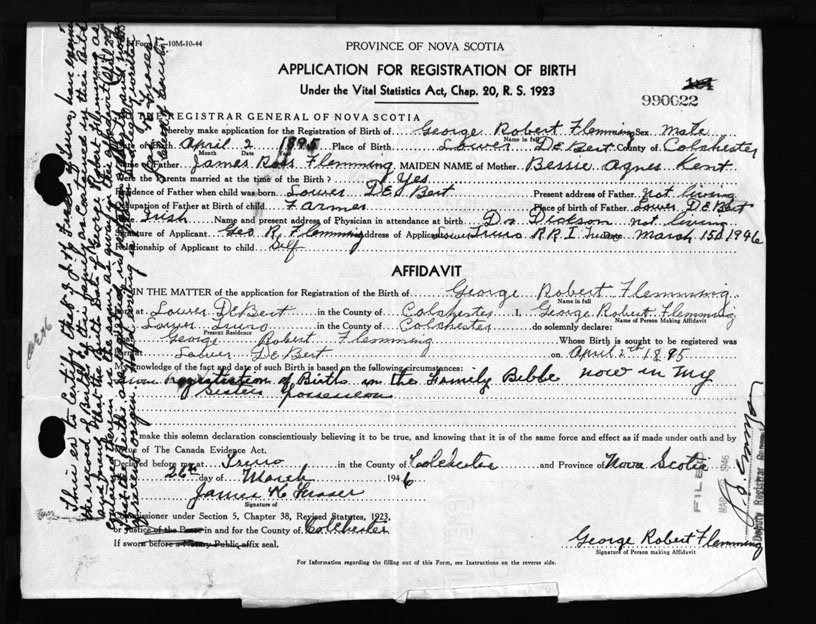 Form
10M-10-44
PROVINCE OF NOVA SCOTIA
APPLICATION FOR REGISTRATION OF BIRTH
Under the Vital Statistics Act, Chap. 20, R. S. 1923
990022
THE REGISTRAR GENERAL OF NOVA SCOTIA
hereby make application for the Registration of Birth of George Robert Flemming Sex Male
Name in full
of Birth April 2 1895 Place of Birth Lower DeBert County of Colchester
Month Date Year
of Father James Ross Flemming MAIDEN NAME of Mother Bessie Agnes Kent
Were the Parents married at the time of the Birth? Yes
Residence of Father when child was born Lower DEBert Present address of Father not living
Occupation of Father at Birth of child Farmer Place of birth of Father Lower DEBert
Irish Name and present address of Physician in attendance at birth Dr Dickson not living
Signature of Applicant Geo R. Flemming Address of Applicant Lower Truro R R 1 Truro Date March 15th 1946
Relationship of Applicant to child Self
AFFIDAVIT
IN THE MATTER of the application for Registration of the Birth of George Robert Flemming
Name in full
at Lower DeBert in the County of Colchester I, George Robert Flemming
Name of Person Making Affidavit
Lower Truro in the County of Colchester do solemnly declare:
Present Residence
George Robert Flemming Whose Birth is sought to be registered was
Lower DeBert on April 2nd 1895
My knowledge of the fact and date of such Birth is based on the following circumstances:
registration of Births in the Family Bibbe now in my
Sisters possession
make this solemn declaration conscientiously believing it to be true, and knowing that it is of the same force and effect as if made under oath and by
virtue of The Canada Evidence Act.
Declared before me at Truro in the County of Colchester and Province of Nova Scotia
26th day of March 1946
James K Fraser
Signature of
Commissioner under Section 5, Chapter 38, Revised Statutes, 1923,
or Justice of the Peace in and for the County of Colchester
If sworn before a Notary Public affix seal.
George Robert Flemming
Signature of Person making Affidavit
For Information regarding the filling out of this Form, see Instructions on the reverse side.
This is to Certify that I, J. K. Fraser of Truro, have examined
the record of Births of their family as Contained in their Bible
FILED
MAR 1946
Deputy Registrar General